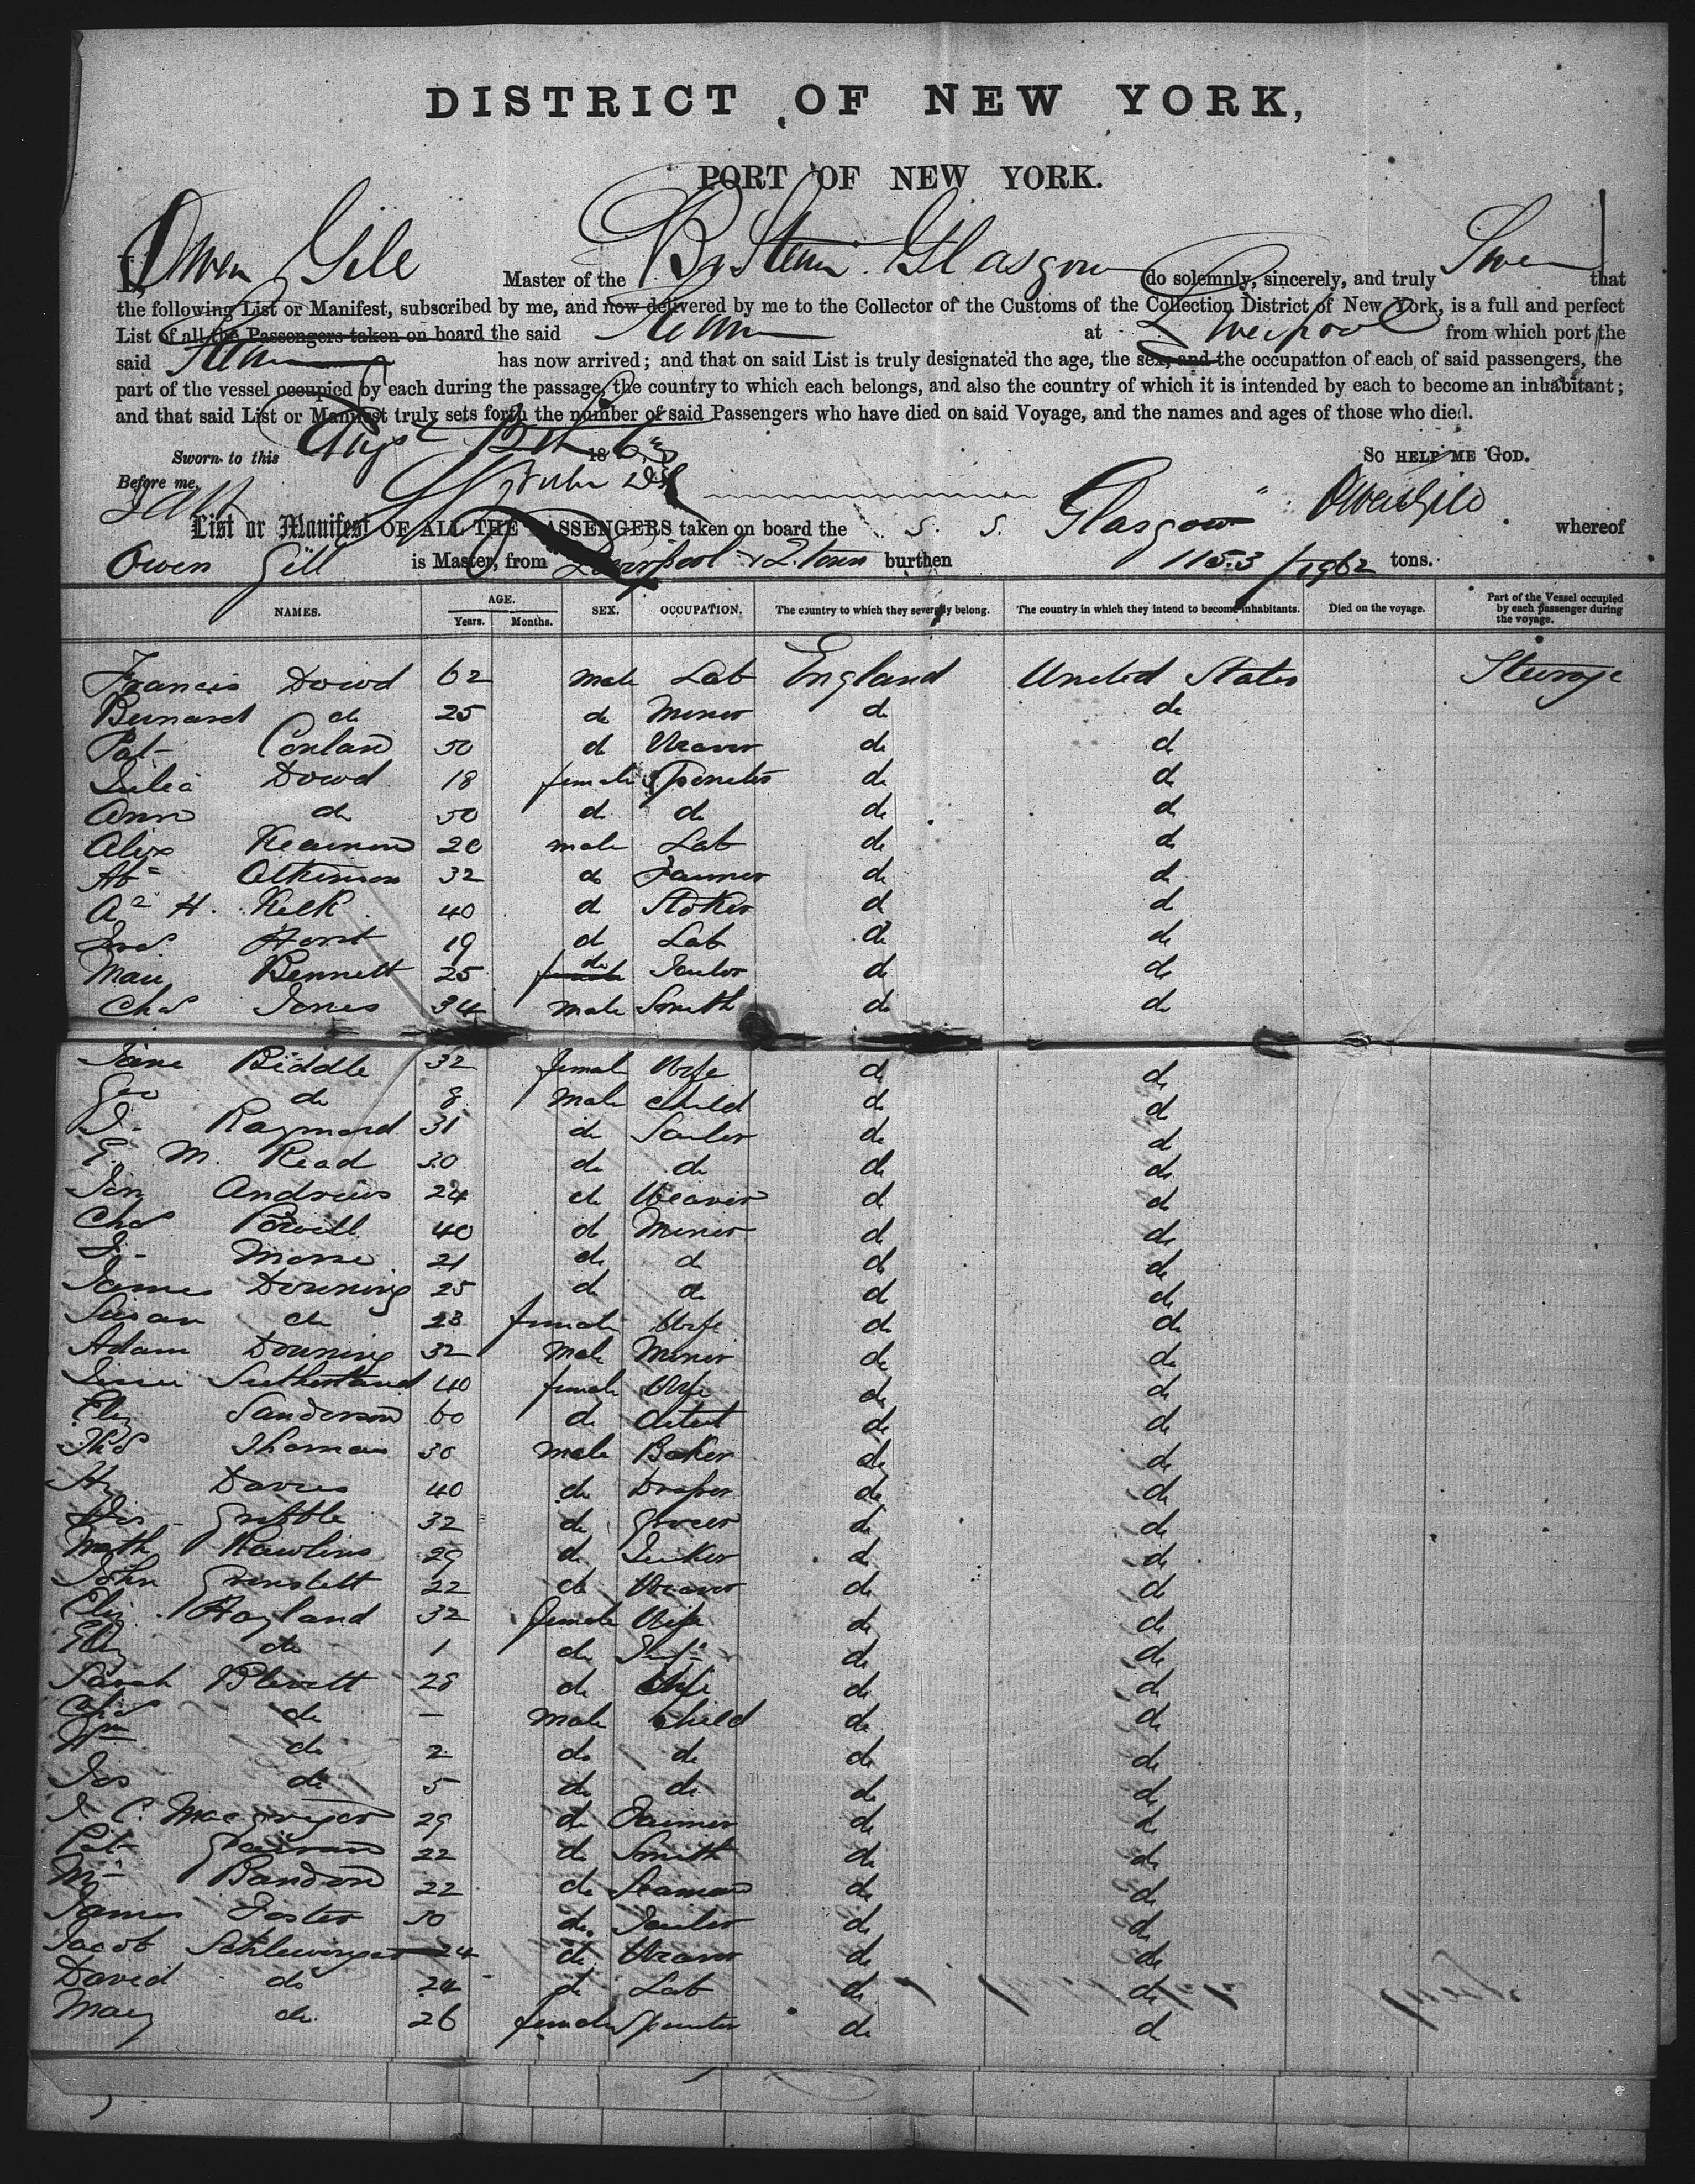 DISTRICT OF NEW YORK,
PORT OF NEW YORK.
I, Owen Gill Master of the Br Steam. Glasgow do solemnly, sincerely, and truly Swear that
the following List or Manifest, subscribed by me, and now delivered by me to the Collector of the Customs of the Collection District of New York, is a full and perfect
List of all the Passengers taken on board the said at Liverpool from which port the
said has now arrived; and that on said List is truly designated the age, the sex, and the occupation of each of said passengers, the
part of the vessel occupied by each during the passage, the country to which each belongs, and also the country of which it is intended by each to become an inhabitant;
and that said List or Manifest truly sets forth the number of said Passengers who have died on said Voyage, and the names and ages of those who died.
Sworn to this Augt 12th 1863 SO HELP ME GOD.
Before me, Owen Gill
List or Manifest OF ALL THE PASSENGERS taken on board the S. S. Glasgow whereof
Owen Gill is Master, from Liverpool & Q.town burthen 1153/1962 tons.
NAMES. AGE. Years. Months. SEX. OCCUPATION. The country to which they severally belong. The country in which they intend to become inhabitants. Died on the voyage. Part of the Vessel occupied by each passenger during the voyage.
Francis Dowd 62 male Lab England United States Steerage
Bernard do 25 do Miner do do
Pat Conlan 50 do Weaver do do
Julia Dowd 18 female Spinster do do
Ann do 50 do do do do
Alix 20 male Lab do do
Atkinson 32 do Farmer do do
H. Kelk 40 do Stoker do do
19 do Lab do do
Bennett 25 do Tailor do do
Chas Jones 34 male Smith do do
Jane Biddle 32 female Wife do do
Geo do 8 male child do do
Raymond 31 do do do
E. M. Read 30 do do do do
Andrews 24 do Weaver do do
Chas Powell 40 do Miner do do
Morse 21 do do do do
James Downing 25 do do do do
Susan do 23 female Wife do do
Adam Downing 32 male Miner do do
Sutherland 40 female Wife do do
Eliz Sanderson 60 do do do
Thos Thomas 30 male Baker do do
Hy Davies 40 do Draper do do
Gribble 32 do Grocer do do
Math Rawlins 29 do do do
John 22 do Weaver do do
Eliz Hayland 32 female Wife do do
Eliz do 1 do Inft do do
Sarah Blevett 28 do Wife do do
Chas do — male child do do
Wm do 2 do do do do
Jos do 5 do do do do
J. C. Macgregor 29 do Farmer do do
Pat 22 do Smith do do
Bandon 22 do Seaman do do
James Foster 50 do Tailor do do
Jacob Schlewinger 24 do Weaver do do
David do 24 do Lab do do
Mary do 26 female Spinster do do